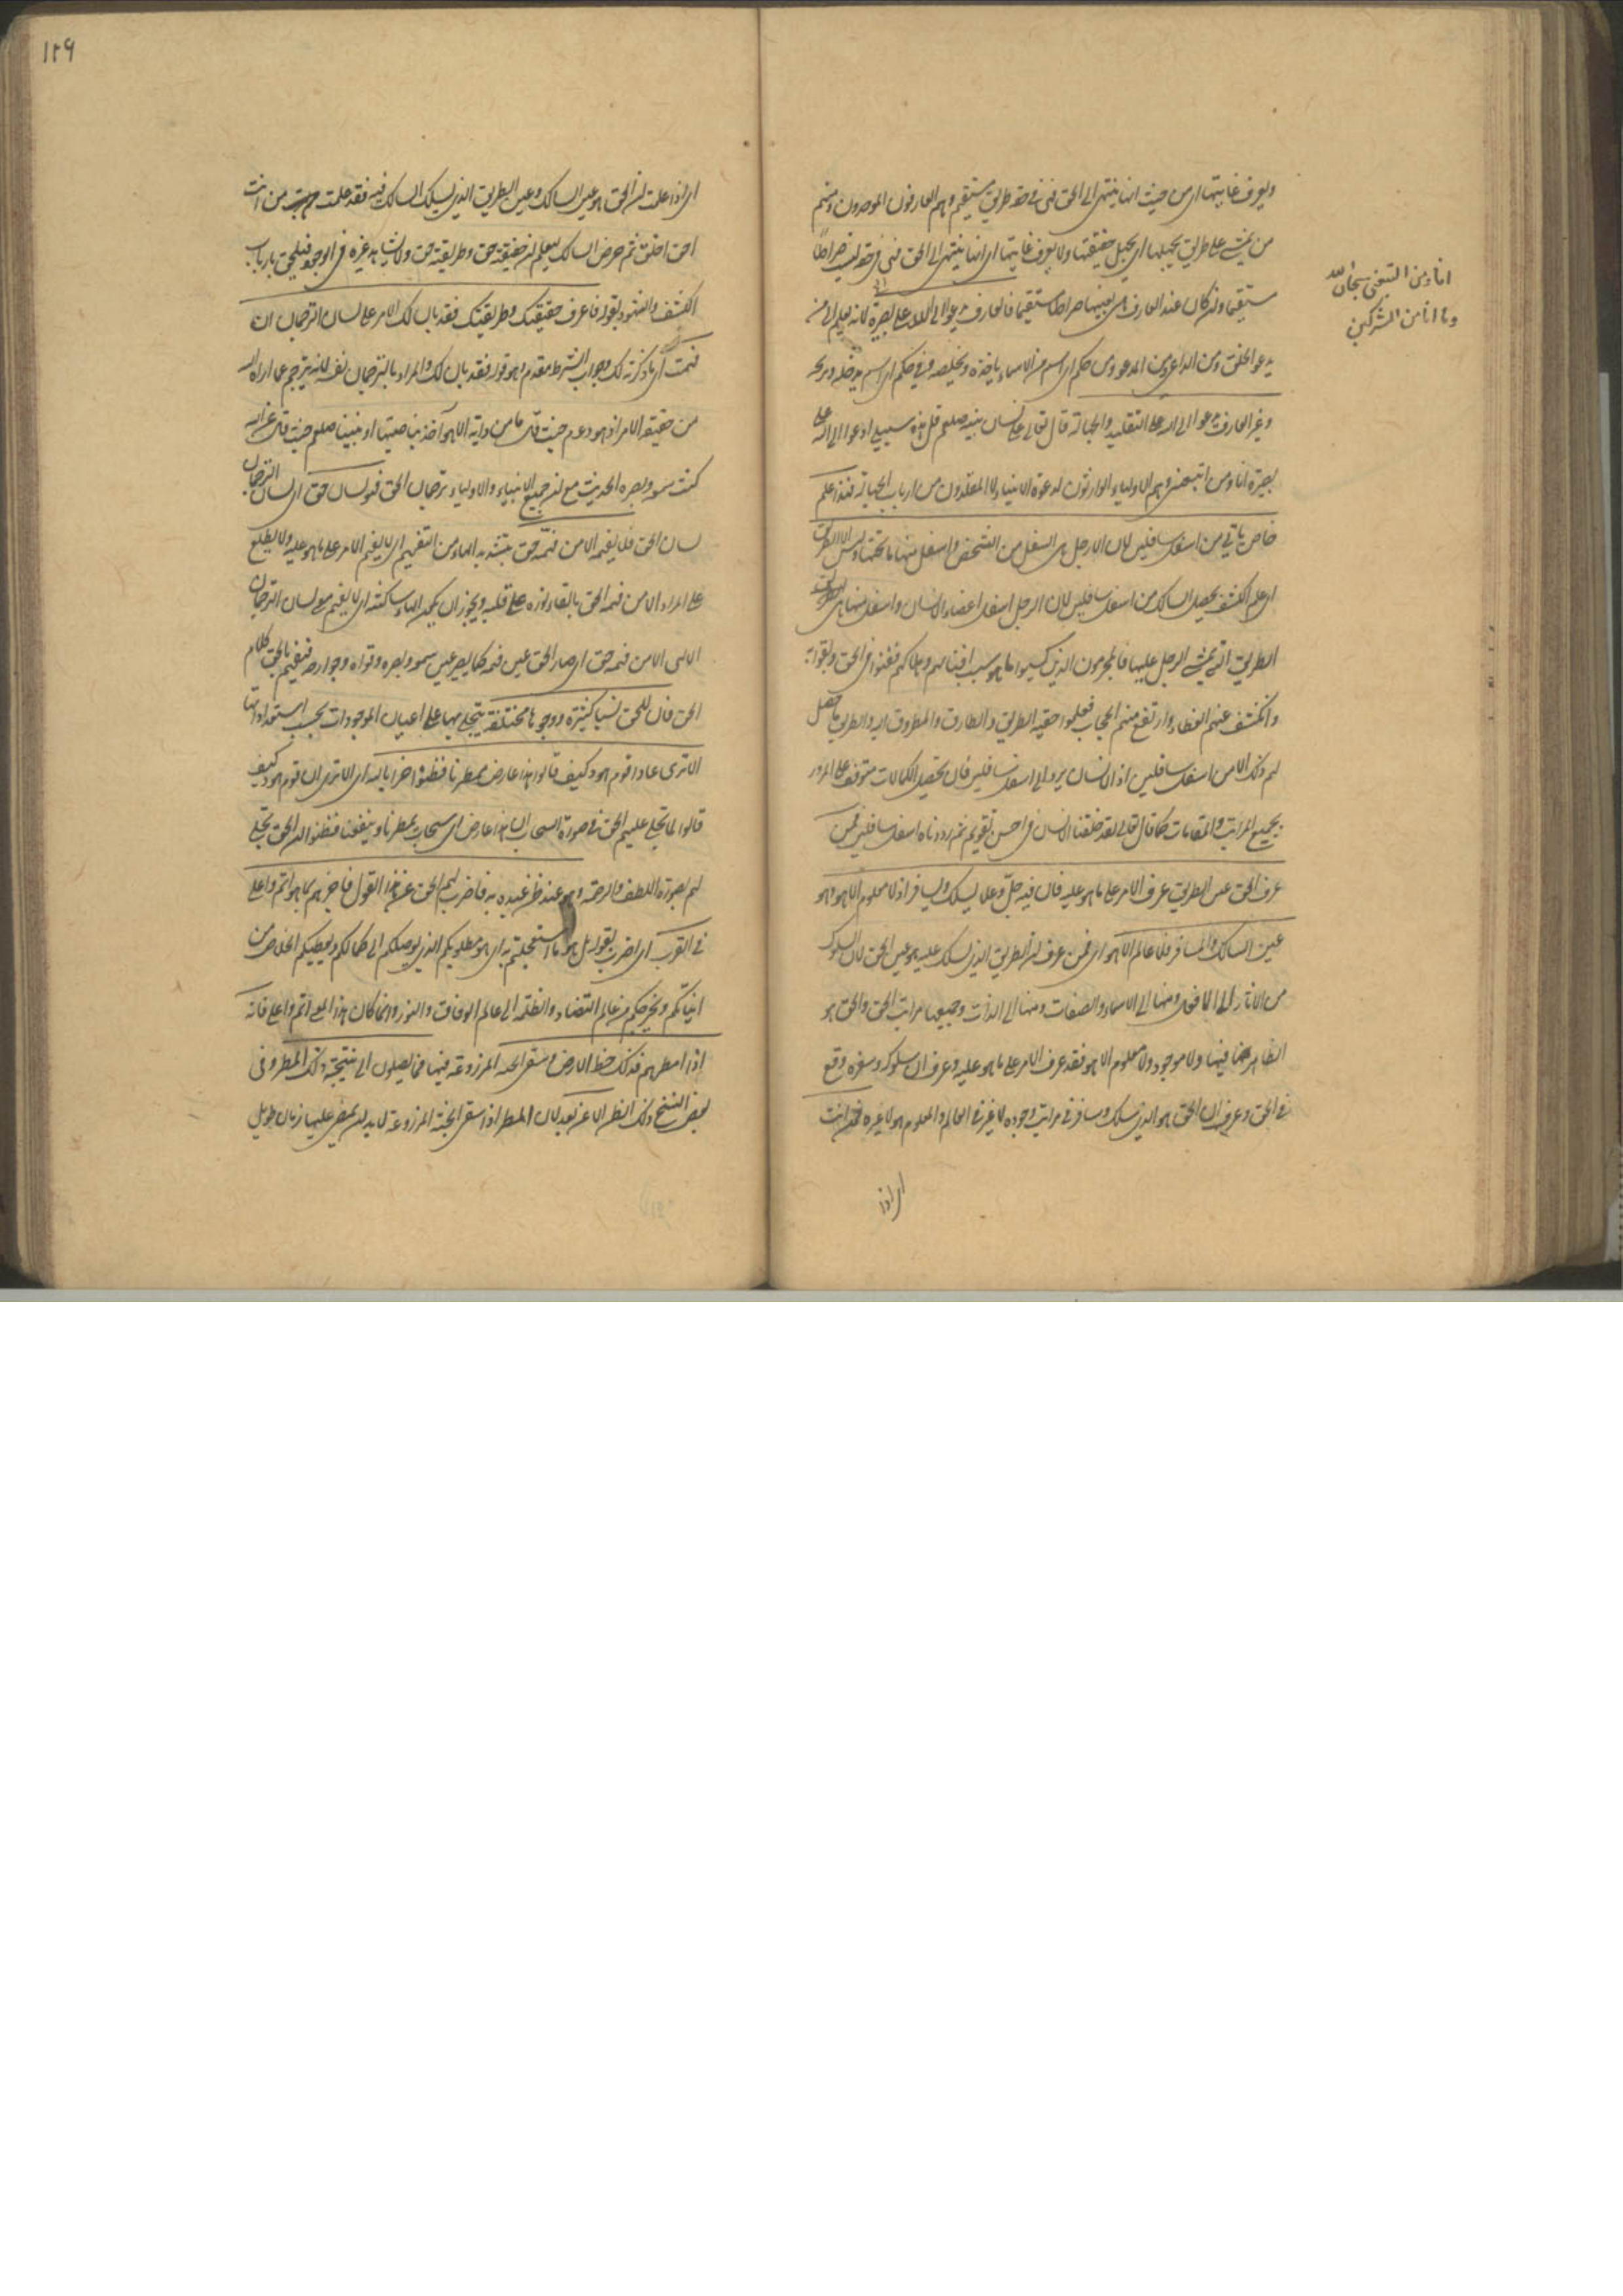 ويعرف غايتها اى من حيث انها ينتهى الى الحق فهى فى حقه طريق مستقيم وهم العارفون الموحدون ومنهم
من يمشى على طريق يجهلها اى يجهل حقيقتها ولا يعرف غايتها اى انها ينتهى الى الحق فهى فى حقه ليست صراطا
مستقيما وان كان عند العارف هى بعينها صراطا مستقيما فالعارف يدعو الى الله على بصيرة لانه يعلم الى من
يدعو الخلق ومن الداعى ومن المدعو ومن حكم اى اسم من الاسماء ياخذه ويخلصه وفى حكم اى اسم يدخله ويربحه
وغير العارف يدعو الى الله على التقليد والجهالة قال تعالى على لسان نبيه صلعم قل هذه سبيلى ادعوا الى الله على
بصيرة انا ومن اتبعنى وهم الاولياء الوارثون لدعوة الانبياء لا المقلدون من ارباب الجهالة فهذا علم
خاص ياتى من اسفل سافلين لان الارجل هى السفل من الشخص واسفل منها ما تحتها وليس الا الطريق
اى علم الكشف يحصل للسالك من اسفل سافلين لان الرجل اسفل اعضاء الانسان واسفل منها هى الطريق
الطريق التى يمشى الرجل عليها فالمجرمون الذين كسبوا ما هو سبب افنائهم وهلاكهم ففنوا فى الحق وبقوا به
وانكشف عنهم الغطاء وارتفع منهم الحجاب فعلموا حقية الطريق والطارق والمطروق اليه والطريق ما حصل
لهم ذلك الا من اسفل سافلين اذ الانسان يرد الى اسفل سافلين فان تحصيل الكمالات متوقف على المرور
بجميع المراتب والمقامات كما قال تعالى لقد خلقنا الانسان فى احسن تقويم ثم رددناه اسفل سافلين فمن
عرف الحق عين الطريق عرف الامر على ما هو عليه فان فيه جلّ وعلا يسلك ويسافر اذ لا معلوم الا هو وهو
عين السالك والمسافر فلا عالم الا هو اى فمن عرف ان الطريق الذى يسلك عليه هو عين الحق لان السلوك
من الآثار الى الافعال ومنها الى الاسماء والصفات ومنها الى الذات وجميعها مراتب الحق والحق هو
الظاهر فيها ولا موجود ولا معلوم الا هو فقد عرف الامر على ما هو عليه وعرف ان سلوكه وسفره وقع
فى الحق وعرف ان الحق هو الذى يسلك ويسافر فى مراتب وجوده لا غير فى العالم والمعلوم هو لا غيره فمن انت
اى اذا
انا ومن اتبعنى سبحان الله
وما انا من المشركين
١٢٩
اى اذا علمت ان الحق هو عين السالك وعين الطريق الذى يسلك السالك فيه فقد علمت من انت
احق ام خلق ثم حرض السالك ليعلم ان حقيقته حق وطريقته حق ولا يشاهد غيره فى الوجود فيلحق بارباب
الكشف والشهود بقوله فاعرف حقيقتك وطريقتك فقد بان لك الامر على لسان الترجمان ان
فهمت اى ما ذكرته لك وجواب الشرط مقدم وهو قوله فقد بان لك والمراد بالترجمان نفسه لانه يترجم عما اراه الله
من حقيقة الامر او هود عم حيث قال ما من دابة الا هو آخذ بناصيتها او نبينا صلعم حيث قال عن الله
كنت سمعه وبصره الحديث مع ان جميع الانبياء والاولياء ترجمان الحق فهو لسان حق اى لسان الترجمان
لسان الحق فلا يفهمه الا من فهمه حق بتشديد الهاء من التفهيم اى لا يفهم الامر على ما هو عليه ولا يطلع
على المراد الا من فهمه الحق بالقاء نوره على قلبه ويجوز ان يكون الهاء ساكنة اى لا يفهم معنى لسان الترجمان
الالهى الا من فهمه حق اى صار الحق عين فهمه كما يصير عين سمعه وبصره وقواه وجوارحه فيفهم بالحق كلام
الحق فان للحق نسبا كثيرة ووجوها مختلفة يتجلى بها على اعيان الموجودات بحسب استعداداتها
الا ترى عادا قوم هود كيف قالوا هذا عارض ممطرنا فظنوا خيرا بالله اى الا ترى ان قوم هود كيف
قالوا لما تجلى عليهم الحق فى صورة السحاب هذا عارض اى سحاب يمطرنا وينفعنا فظنوا ان الحق تجلى
لهم بصورة اللطف والرحمة وهو عند ظن عبده به فاضرب لهم الحق عن هذا القول فاخبرهم بما هو اتم واعلى
فى القرب اى اضرب بقوله بل هو ما استعجلتم به اى هو مطلوبكم الذى يوصلكم الى كمالكم ويعطيكم الخلاص من
انياتكم ويخرجكم من عالم التضاد والظلمة الى عالم الوفاق والنور وانما كان هذا المعنى اتم واعلى فانه
اذا امطرهم فذلك حظ الارض وسقى الحبة المزروعة فيها فما يصلون الى نتيجة ذلك المطر وفى
بعض النسخ ذلك الظن الا عن بعد لان المطر اذا سقى الحبة المزروعة لا بد ان يمضى عليها زمان طويل